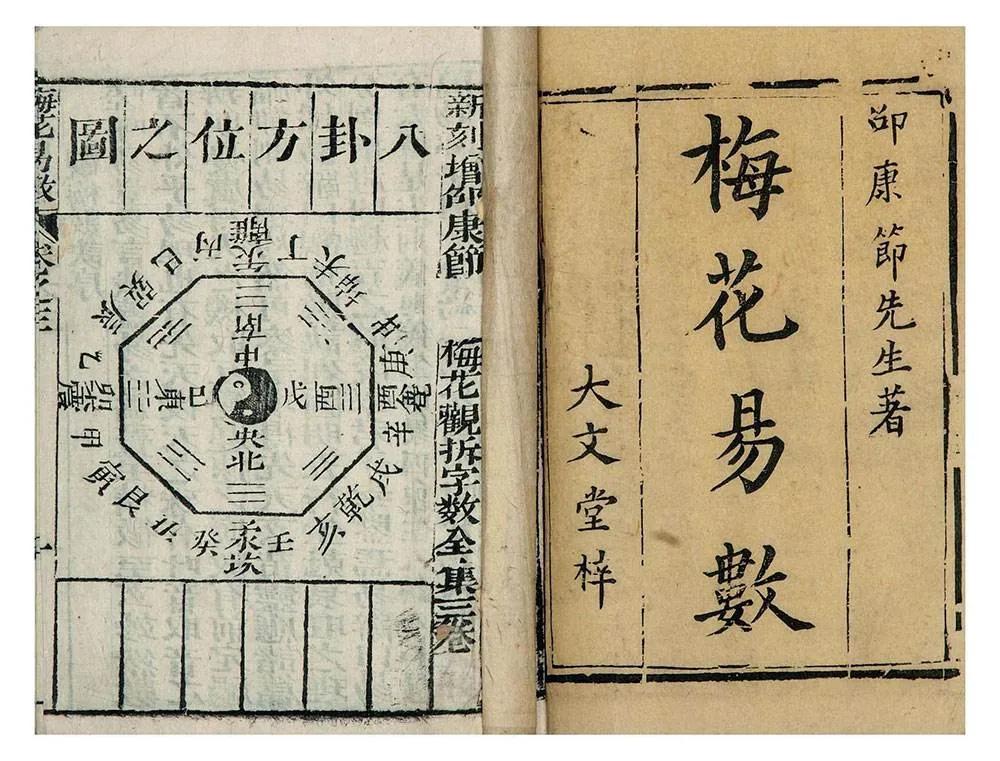 邵康節先生著
梅花易數
大文堂梓
新刻增邵康節
梅花觀拆字数全集三卷
八卦方位之圖
丙
離
丁
未
坤
申
庚
酉
辛
戌
乾
亥
壬
坎
癸
艮
寅
甲
卯
震
乙
辰
巽
巳
南
中
東
巳
戊
酉
央
北
梅花易数
卷之三